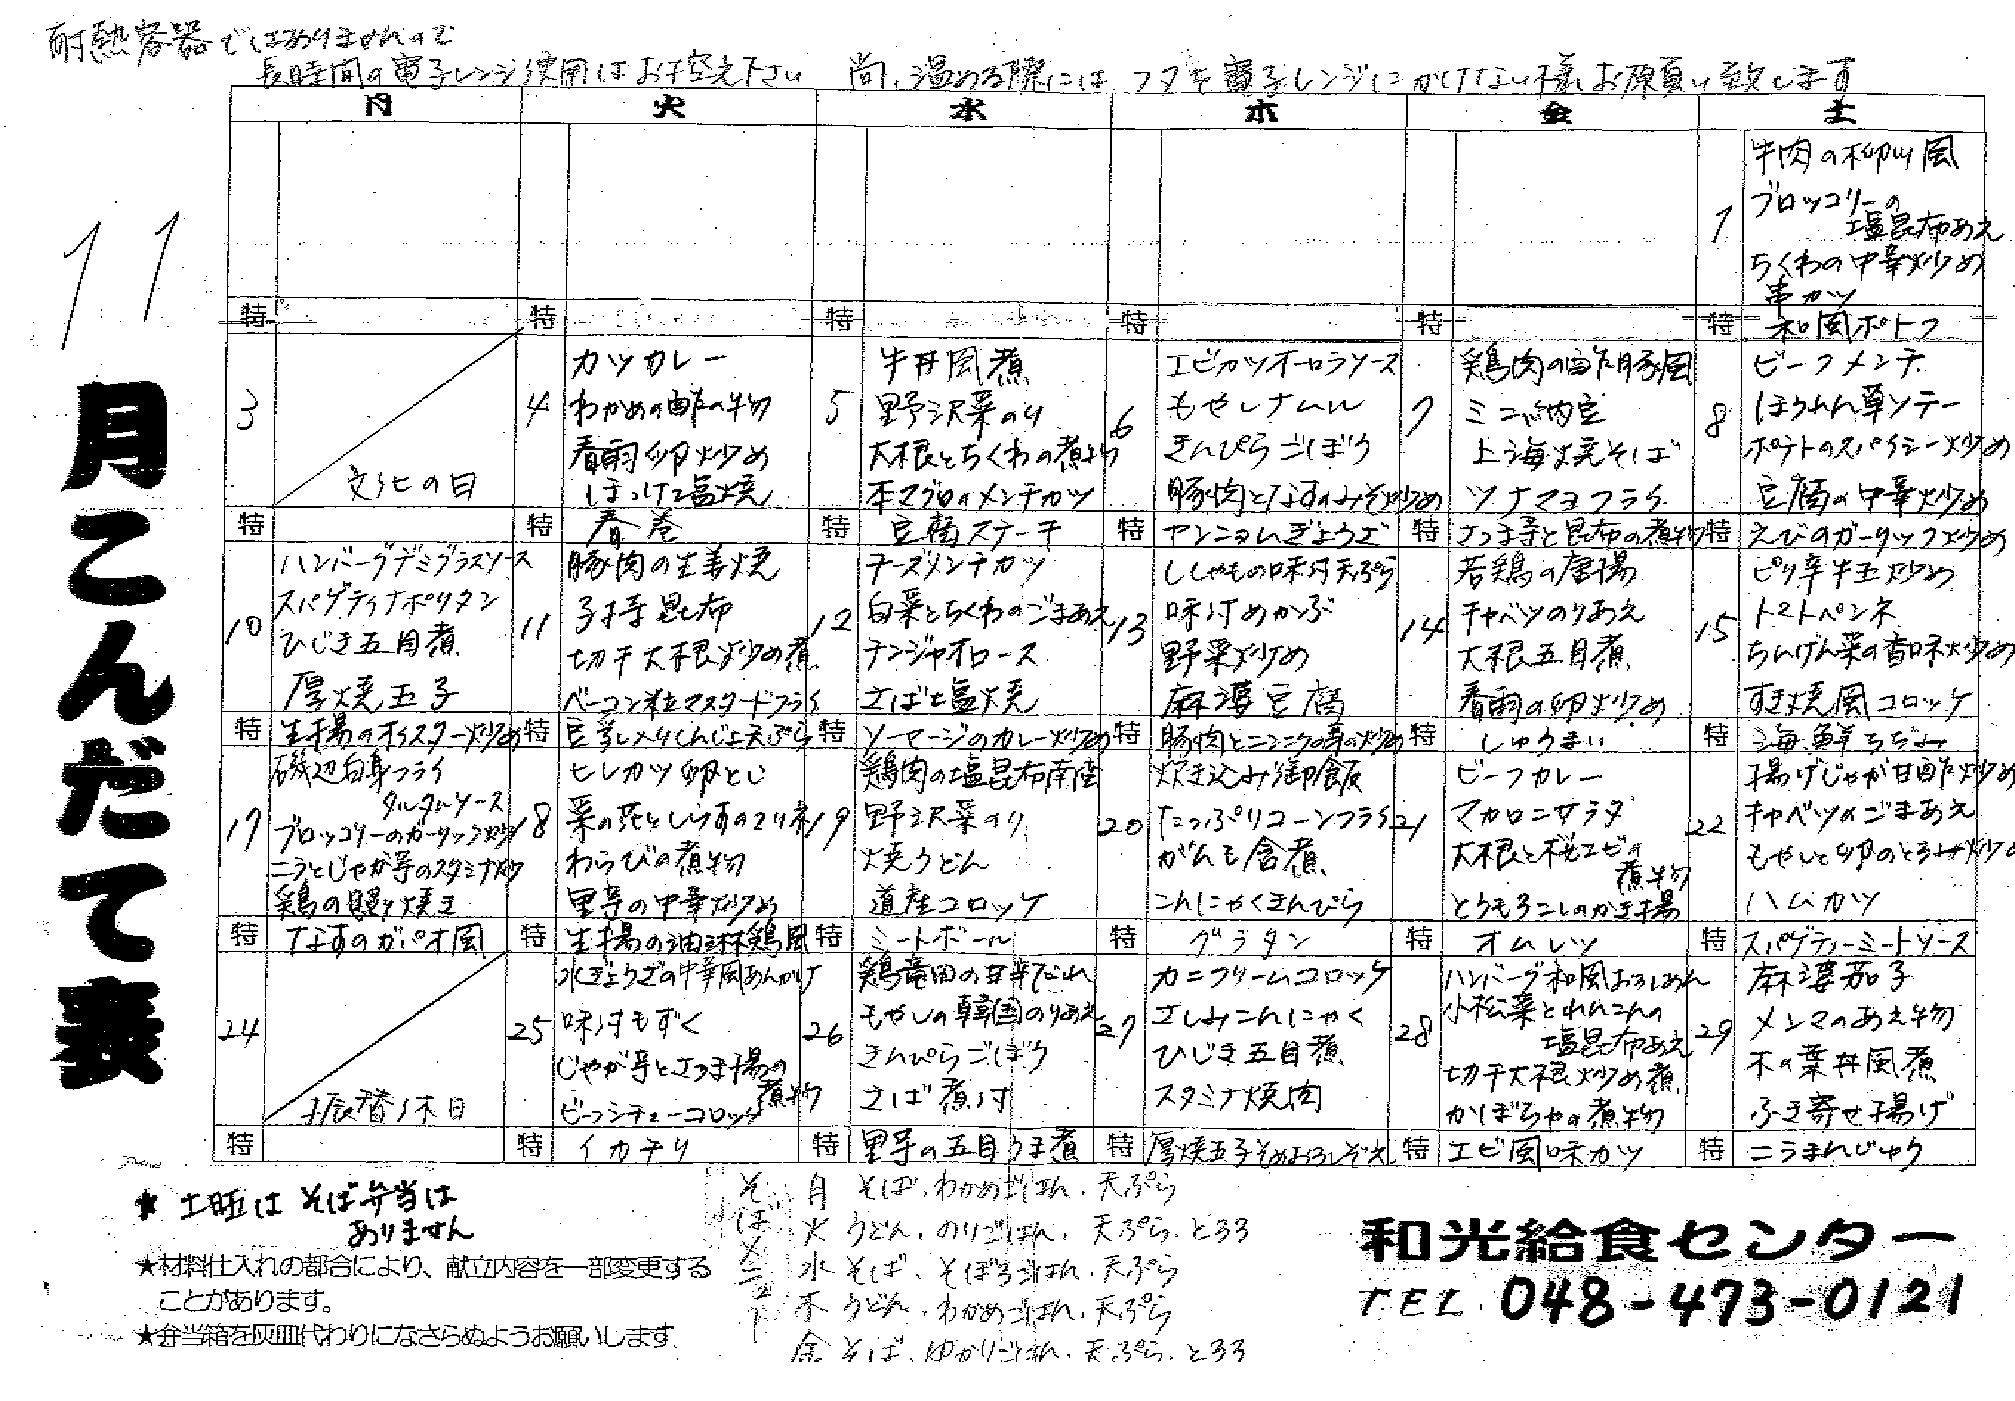 耐熱容器ではありませんので
長時間の電子レンジ使用はお控え下さい 尚、温める際には、フタを電子レンジにかけない様お願い致します
11月こんだて表
月 火 水 木 金 土
1
牛肉の柳川風
ブロッコリーの
塩昆布あえ
ちくわの中華炒め
串カツ
特 特 特 特 特 特 和風ポトフ
3
文化の日
特
4
カツカレー
わかめの酢の物
春雨卵炒め
ほっけ塩焼
特 春巻
5
牛丼風煮
野沢菜のり
大根とちくわの煮物
本マグロのメンチカツ
特 豆腐ステーキ
6
エビカツオーロラソース
もやしナムル
きんぴらごぼう
豚肉となすのみそ炒め
特 ヤンニョムぎょうざ
7
鶏肉の酢豚風
ミニ納豆
上海焼そば
ツナマヨフライ
特 さつま芋と昆布の煮物
8
ビーフメンチ
ほうれん草ソテー
ポテトのスパイシー炒め
豆腐の中華炒め
特 えびのガーリック炒め
10
ハンバーグデミグラスソース
スパゲティナポリタン
ひじき五目煮
厚焼玉子
特 生揚のオイスター炒め
11
豚肉の生姜焼
子持昆布
切干大根炒め煮
ベーコン粒マスタードフライ
特 豆乳入りしんじょ天ぷら
12
チーズメンチカツ
白菜とちくわのごまあえ
チンジャオロース
さば塩焼
特 ソーセージのカレー炒め
13
ししゃもの味付天ぷら
味付めかぶ
野菜炒め
麻婆豆腐
特 豚肉とニンニクの芽の炒め
14
若鶏の唐揚
キャベツのりあえ
大根五目煮
春雨の卵炒め
特 しゅうまい
15
ピリ辛牛玉炒め
トマトペンネ
ちんげん菜の香味炒め
すき焼風コロッケ
特 海鮮ちぢみ
17
磯辺白身フライ
タルタルソース
ブロッコリーのガーリック炒め
ニラとじゃが芋のスタミナ炒め
鶏の照り焼き
特 なすのガパオ風
18
ヒレカツ卵とじ
菜の花としらすのマリネ
わらびの煮物
里芋の中華炒め
特 生揚の油淋鶏風
19
鶏肉の塩昆布南蛮
野沢菜のり
焼うどん
道産コロッケ
特 ミートボール
20
炊き込み御飯
たっぷりコーンフライ
がんも含煮
こんにゃくきんぴら
特 グラタン
21
ビーフカレー
マカロニサラダ
大根と桜エビの
煮物
とうもろこしのかき揚
特 オムレツ
22
揚げじゃが甘酢炒め
キャベツのごまあえ
もやしと卵のとろみ炒め
ハムカツ
特 スパゲティーミートソース
24
振替休日
特
25
水ぎょうざの中華風あんかけ
味付もずく
じゃが芋とさつま揚の
煮物
ビーフシチューコロッケ
特 イカチリ
26
鶏竜田の甘辛だれ
もやしの韓国のりあえ
きんぴらごぼう
さば煮付
特 里芋の五目うま煮
27
カニクリームコロッケ
さしみこんにゃく
ひじき五目煮
スタミナ焼肉
特 厚焼玉子そぼろ
28
ハンバーグ和風おろしあん
小松菜とれんこんの
塩昆布あえ
切干大根炒め煮
かぼちゃの煮物
特 エビ風味カツ
29
麻婆茄子
メンマのあえ物
木の葉丼風煮
ふき寄せ揚げ
特 こうまんじゅう
* 土曜は そば弁当は
ありません
★材料仕入れの都合により、献立内容を一部変更する
ことがあります。
★弁当箱を灰皿代わりになさらぬようお願いします
そば
月 そば、わかめごはん、天ぷら
火 うどん、のりごはん、天ぷら、とろろ
水 そば、そぼろごはん、天ぷら
木 うどん、わかめごはん、天ぷら
金 そば、ゆかりごはん、天ぷら、とろろ
和光給食センター
TEL. 048-473-0121